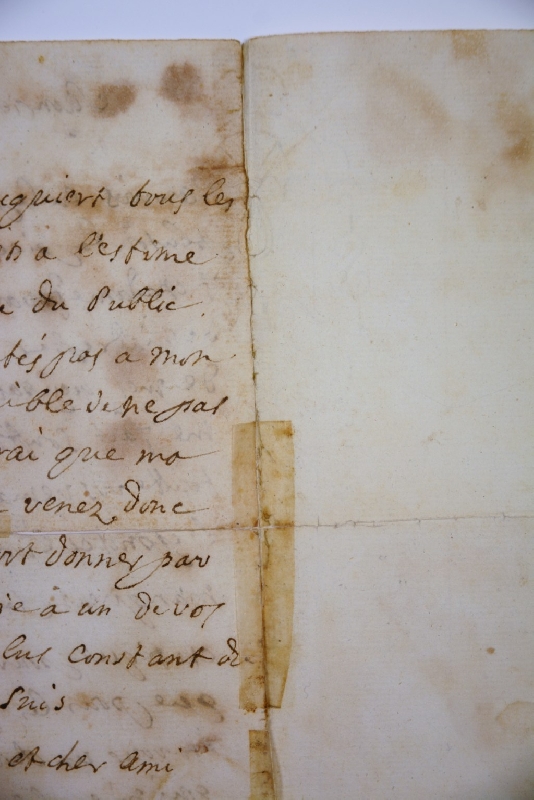 quiert tous les
a l'estime
du Public
tés pas a mon
ible de ne pas
rai que ma
venez donc
ort donner par
ie a un de vos
lus constant de
suis
et cher ami